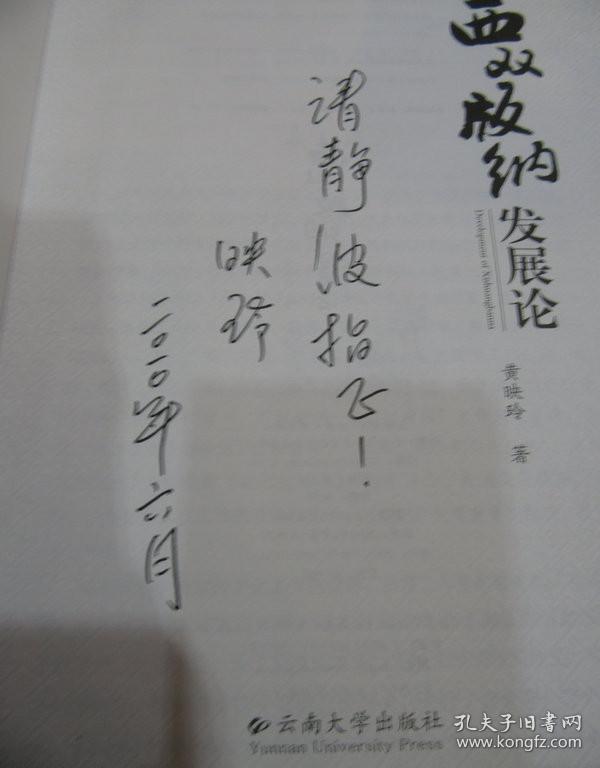 西双版纳
发展论
Development of Xishuangbanna
黄映玲 著
请静波指正！
映玲
二〇一〇年六月
云南大学出版社
Yunnan University Press
孔夫子旧书网
www.kongfz.com